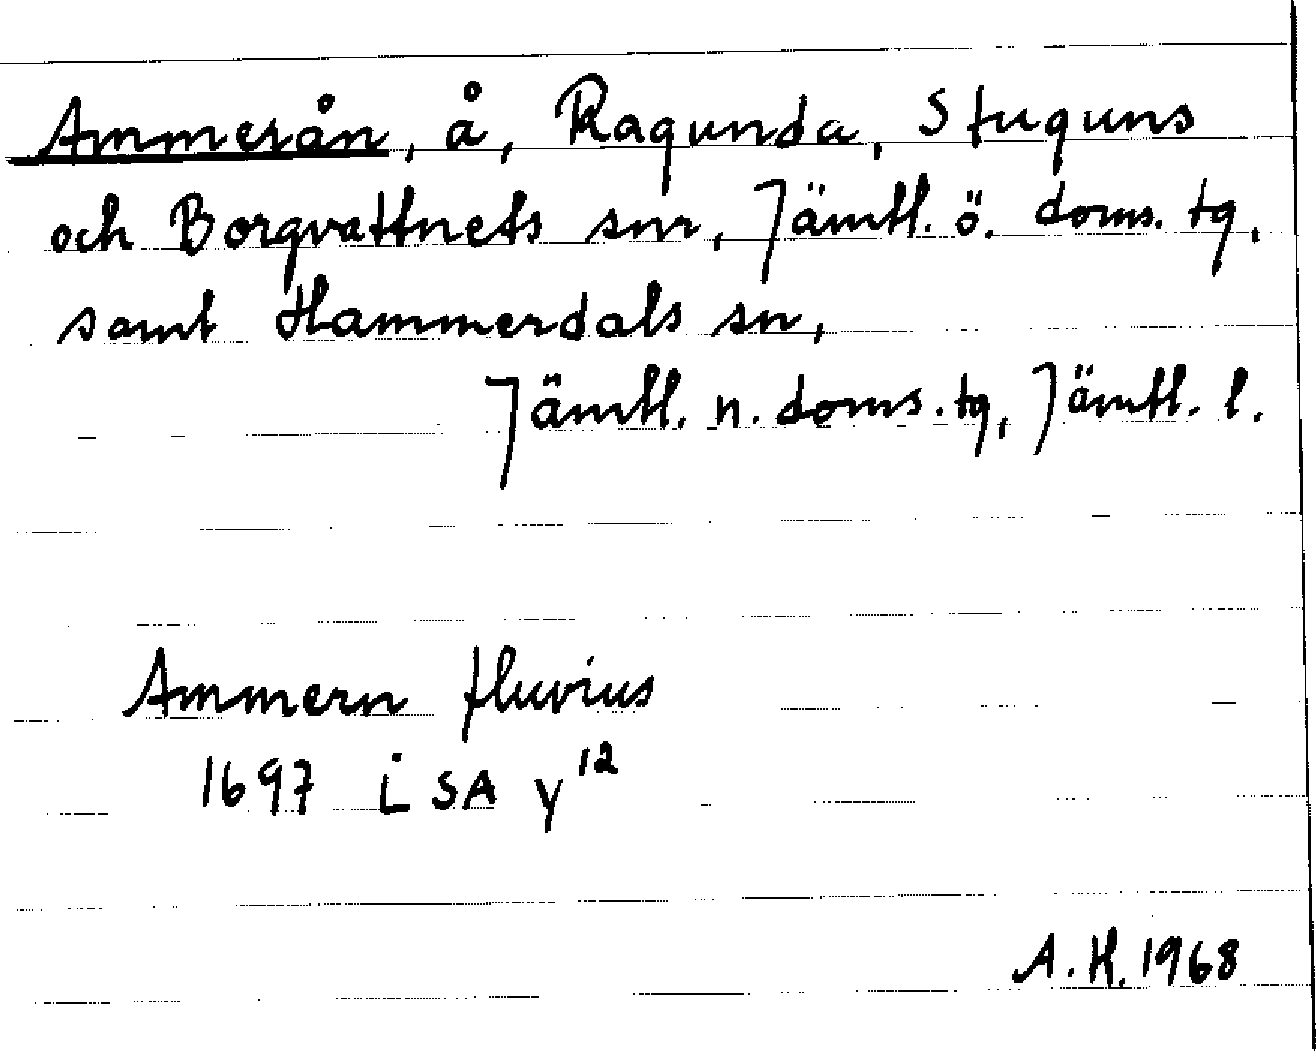 Ammerån, å, Ragunda, Stuguns
och Borgvattnets snr, Jämtl. ö. doms. tg,
samt Hammerdals sn,
Jämtl. n. doms. tg, Jämtl. l.
Ammern fluvius
1697 LSA Y¹²
A.K. 1968